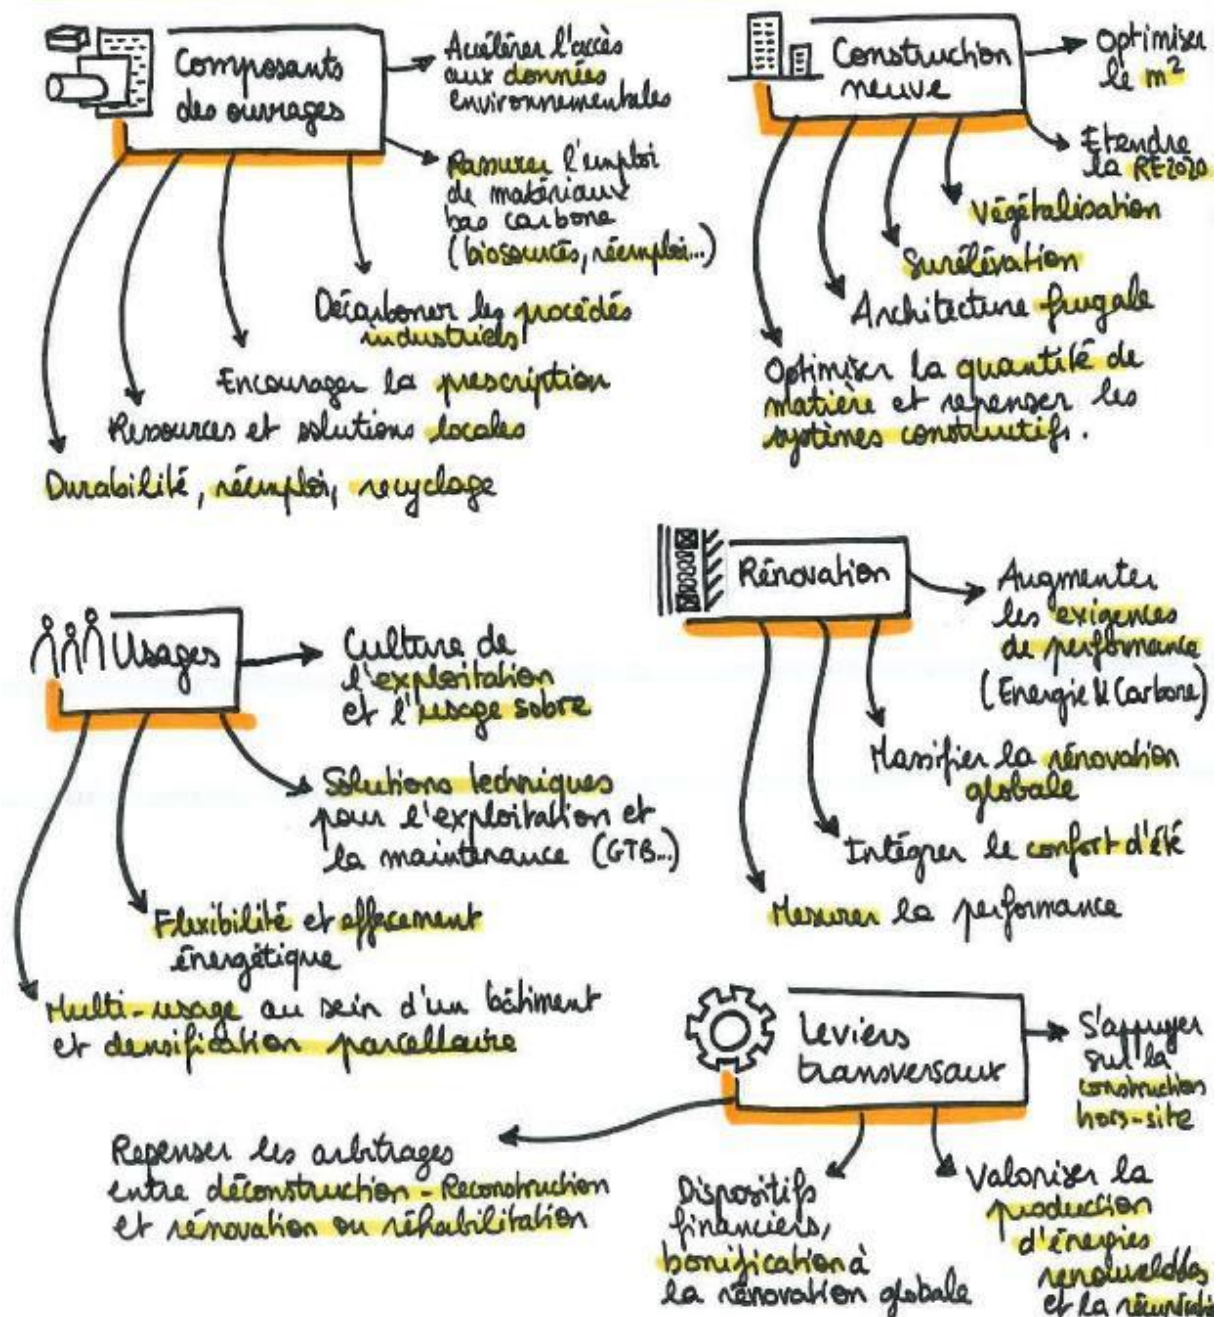 Composants
des ouvrages
Accélérer l'accès
aux données
environnementales
Rassurer l'emploi
de matériaux
bas carbone
(biosourcés, réemploi...)
Décarboner les procédés
industriels
Encourager la prescription
Ressources et solutions locales
Durabilité, réemploi, recyclage
Construction
neuve
Optimiser
le m²
Etendre
la RE2020
Végétalisation
Surélévation
Architecture frugale
Optimiser la quantité de
matière et repenser les
systèmes constructifs.
Usages
Culture de
l'exploitation
et l'usage sobre
Solutions techniques
pour l'exploitation et
la maintenance (GTB...)
Flexibilité et effacement
énergétique
Multi-usage au sein d'un bâtiment
et densification parcellaire
Rénovation
Augmenter
les exigences
de performance
(Energie & Carbone)
Massifier la rénovation
globale
Intégrer le confort d'été
Mesurer la performance
Leviers
transversaux
S'appuyer
sur la
construction
hors-site
Repenser les arbitrages
entre déconstruction - Reconstruction
et rénovation ou réhabilitation
Dispositifs
financiers,
bonification à
la rénovation globale
Valoriser la
production
d'énergies
renouvelables
et la